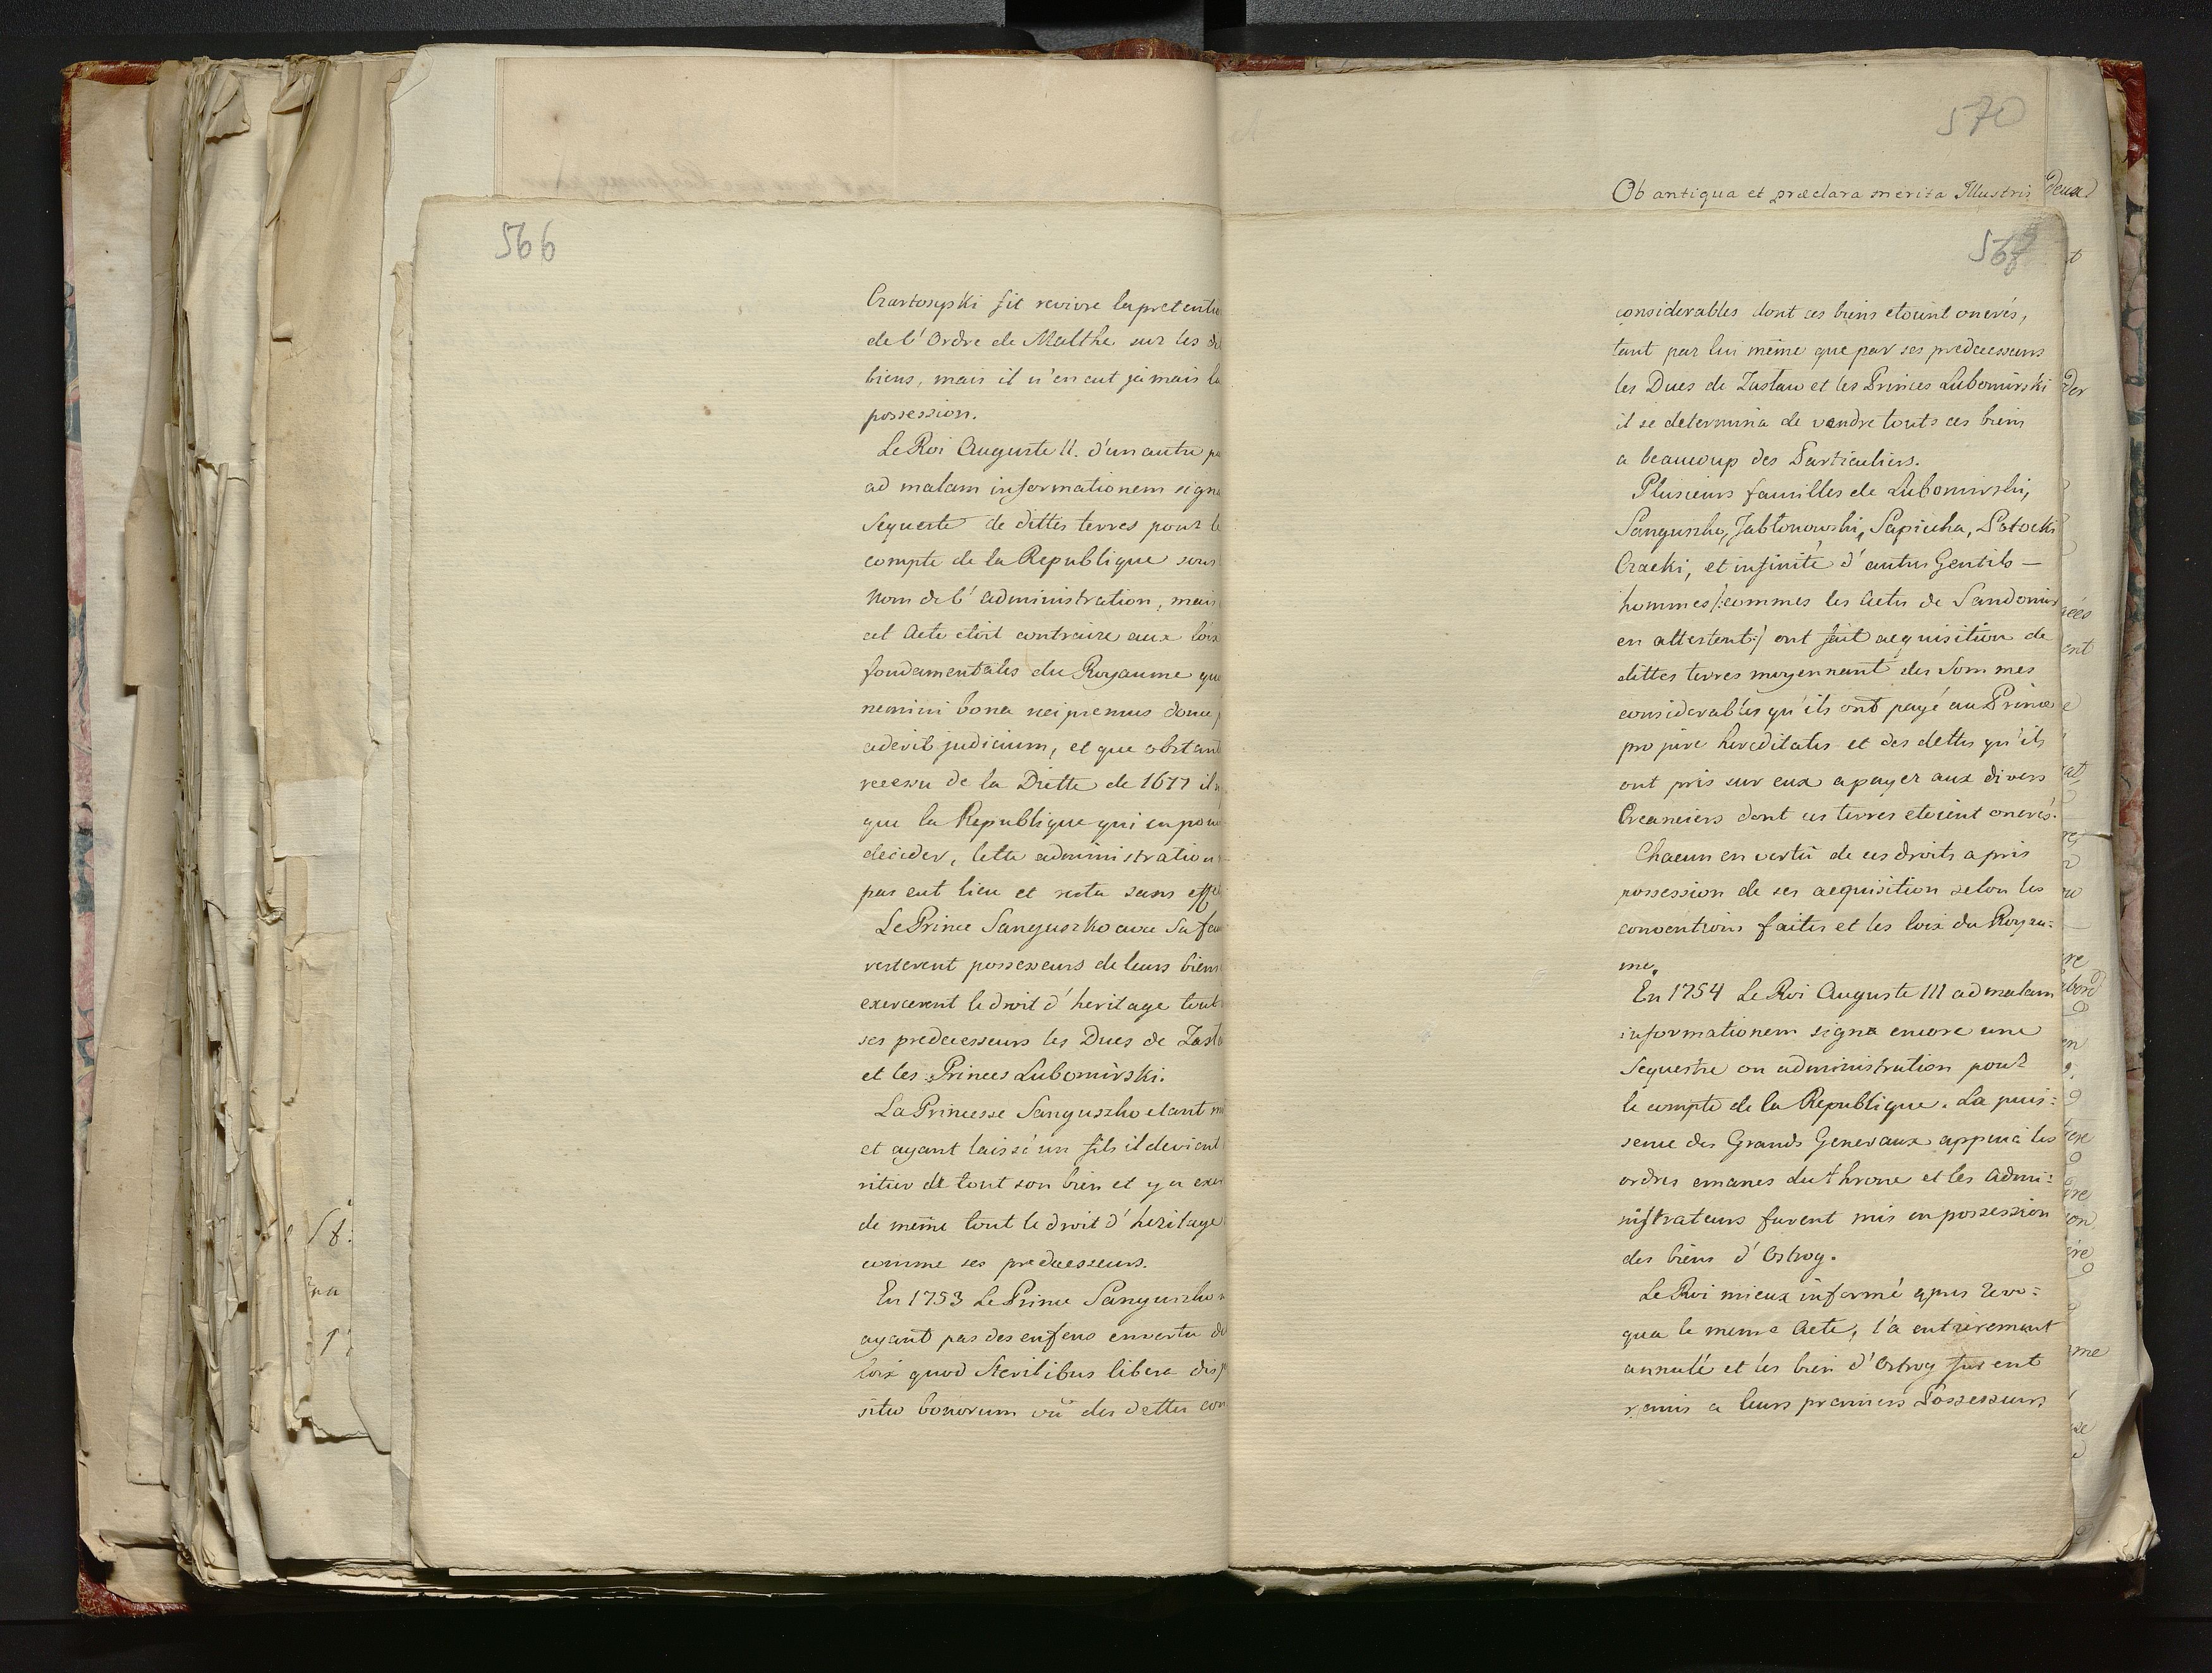 566
Czartoryski fit revivre la pretentio
de l'Ordre de Malthe sur les di
biens, mais il n'en eut jamais la
possession.
Le Roi Auguste II. d'un autre
ad malam informationem signa
Sequestre de dittes terres pour le
compte de la Republique sous
Nom de l'administration, mais
cet Acte etoit contraire aux loix
fondamentales du Royaume que
nemini bona
aderit judicium, et que obstant
recessu de la Diette de 1677 il
que la Republique qui en pou
decider, Cette administration
pas eut lieu et resta sans effet
Le Prince Sanguszko avec Sa fem
resterent possesseurs de leurs biens
exercerent le droit d'heritage tout
ses predecesseurs les Ducs de Zasla
et les Princes Lubomirski.
La Princesse Sanguszko etant
et ayant laissé un fils il devient
ritier de tout son bien et y a exer
de même tout le droit d'heritage
comme ses predecesseurs.
En 1753 Le Prince Sanguszko n
ayant pas des enfens en vertu de
loix quod Sterilibus libera disp
sitio bonorum vû des dettes con
570
Ob antiqua et præclara merita Illustris
deux
567
considerables dont ces biens etoient onerés,
tant par lui même que par ses predecesseurs
les Ducs de Zaslaw et les Princes Lubomirski
il se determina de vendre touts ces biens
a beaucoup des Particuliers.
Plusieurs familles de Lubomirski,
Sanguszko, Jabłonowski, Sapieha, Potocki
Czacki, et infinité d'autres Gentils—
hommes /:commes les Actes de Sandomir
en attestent:/ ont fait acquisition de
dittes terres moyennant des Sommes
considerables qu'ils ont payé au Prince
pro jure hereditatis et des dettes qu'ils
ont pris sur eux a payer aux divers
Creanciers dont ces terres etoient onerés.
Chacun en vertû de ces droits a pris
possession de ses acquisition selon les
conventions faites et les loix du Royau:
me.
En 1754 Le Roi Auguste III ad malam
informationem signa encore une
Sequestre ou administration pour
le compte de la Republique. La puis:
sence des Grands Generaux appuia les
ordres emanes du throne et les Admi:
nistrateurs furent mis en possession
des biens d'Ostrog.
Le Roi mieux informé apres revo:
qua le meme Acte, l'a entierement
annulé et les bien d'Ostrog furent
remis a leurs premiers Possesseurs